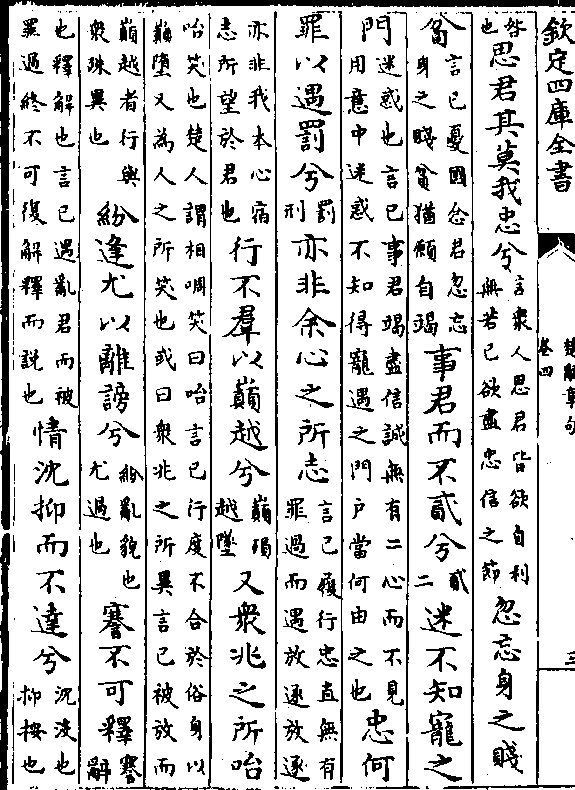 欽定四庫全書
楚辭章句
卷四
三
咎也思君其莫我忠兮言衆人思君皆欲自利無若已欲盡忠信之節忽忘身之賤
貧言已憂國念君忽忘身之賤貧猶願自竭事君而不貳兮貳二迷不知寵之
門迷惑也言已事君竭盡信誠無有二心而不見用意中迷惑不知得寵遇之門戸當何由之也忠何
罪以遇罰兮罰刑亦非余心之所志言已履行忠直無有罪過而遇放逐放逐
亦非我本心宿志所望於君也行不羣以巔越兮巔殞越墜又衆兆之所咍
咍笑也楚人謂相啁笑曰咍言已行度不合於俗身以巔墮又為人之所笑也或曰衆兆之所異言已被放而
巔越者行與衆殊異也紛逢尤以離謗兮紛亂貌也尤過也謇不可釋謇辭
也釋解也言已遇亂君而被罪過終不可復解釋而說也情沈抑而不達兮沉没也抑按也